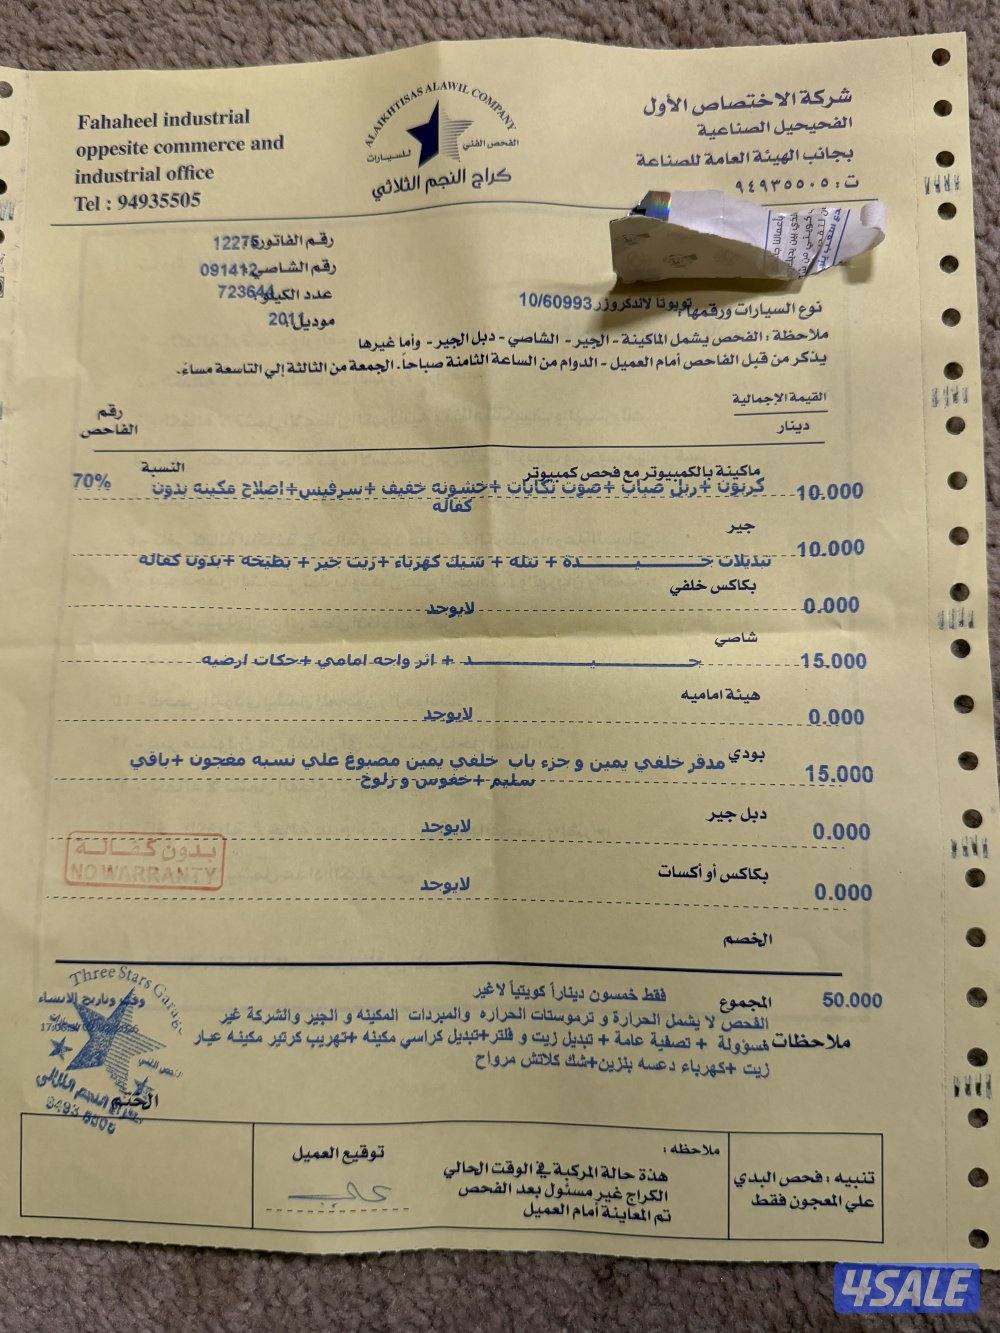 Fahaheel industrial
oppesite commerce and
industrial office
Tel : 94935505
ALAIKHTISAS ALAWIL COMPANY
الفحص الفني للسيارات
كراج النجم الثلاثي
شركة الاختصاص الأول
الفحيحيل الصناعية
بجانب الهيئة العامة للصناعة
ت : ٩٤٩٣٥٥٠٥
رقم الفاتورة 12275
رقم الشاصي 091412
عدد الكيلو 723644
موديل 2011
نوع السيارات ورقمها: تويوتا لاندكروزر 10/60993
ملاحظة : الفحص يشمل الماكينة - الجير - الشاصي - دبل الجير - وأما غيرها
يذكر من قبل الفاحص أمام العميل - الدوام من الساعة الثامنة صباحاً. الجمعة من الثالثة إلي التاسعة مساءً.
القيمة الإجمالية
دينار
رقم
الفاحص
ماكينة بالكمبيوتر مع فحص كمبيوتر النسبة
10.000 كربون +ربل صباب +صوت تكايات +خشونه خفيف +سرفيس+اصلاح مكينه بدون 70%
كفاله
جير
10.000 تبديلات جـــيـــدة + نتله + شيك كهرباء +زيت جير + بطيخه +بدون كفاله
بكاكس خلفي
0.000 لايوجد
شاصي
15.000 جـــيـــد + اثر واجه امامي +حكات ارضيه
هيئة اماميه
0.000 لايوجد
بودي
15.000 مدقر خلفي يمين و جزء باب خلفي يمين مصبوغ علي نسبه معجون +باقي
سليم +خفوس و زلوخ
دبل جير
0.000 لايوجد
بكاكس أو أكسات
0.000 لايوجد
بدون كفالة
NO WARRANTY
الخصم
50.000 المجموع فقط خمسون ديناراً كويتياً لاغير
ملاحظات
الفحص لا يشمل الحرارة و ترموستات الحراره والمبردات المكينه و الجير والشركة غير
مسؤولة + تصفية عامة + تبديل زيت و فلتر+تبديل كراسي مكينه +تهريب كرتير مكينه عيار
زيت +كهرباء دعسه بنزين+شك كلاتش مرواح
Three Stars Garage
وقت وتاريخ الانتهاء
الفحص الفني
كراج النجم الثلاثي
الختم
تنبيه : فحص البدي
علي المعجون فقط
ملاحظه :
هذة حالة المركبة في الوقت الحالي
الكراج غير مسئول بعد الفحص
تم المعاينة أمام العميل
توقيع العميل
4SALE